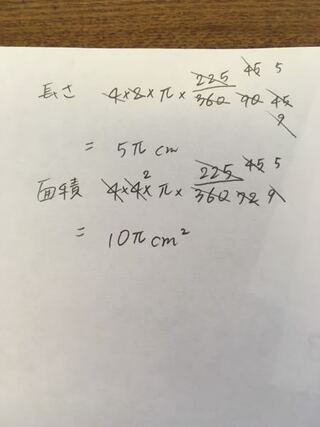 長さ 4×2×π× 225/360 45 5 90 45 9
= 5π cm
面積 4×4×π× 225/360 2 45 5 72 9
= 10π cm²